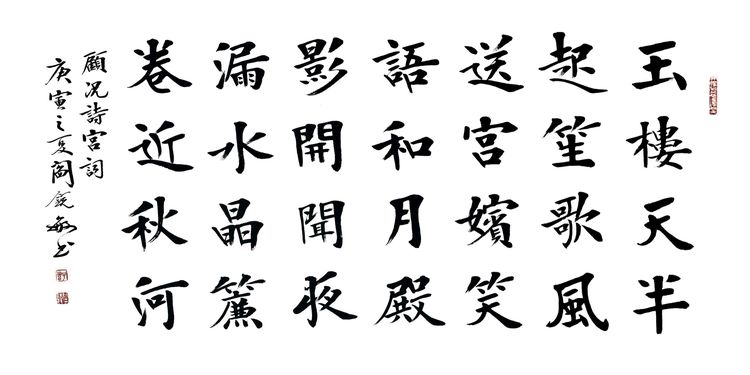 玉樓天半
起笙歌風
送宮嬪笑
語和月殿
影開聞夜
漏水晶簾
卷近秋河
顧況詩宮詞
庚寅之夏閻銳敏书